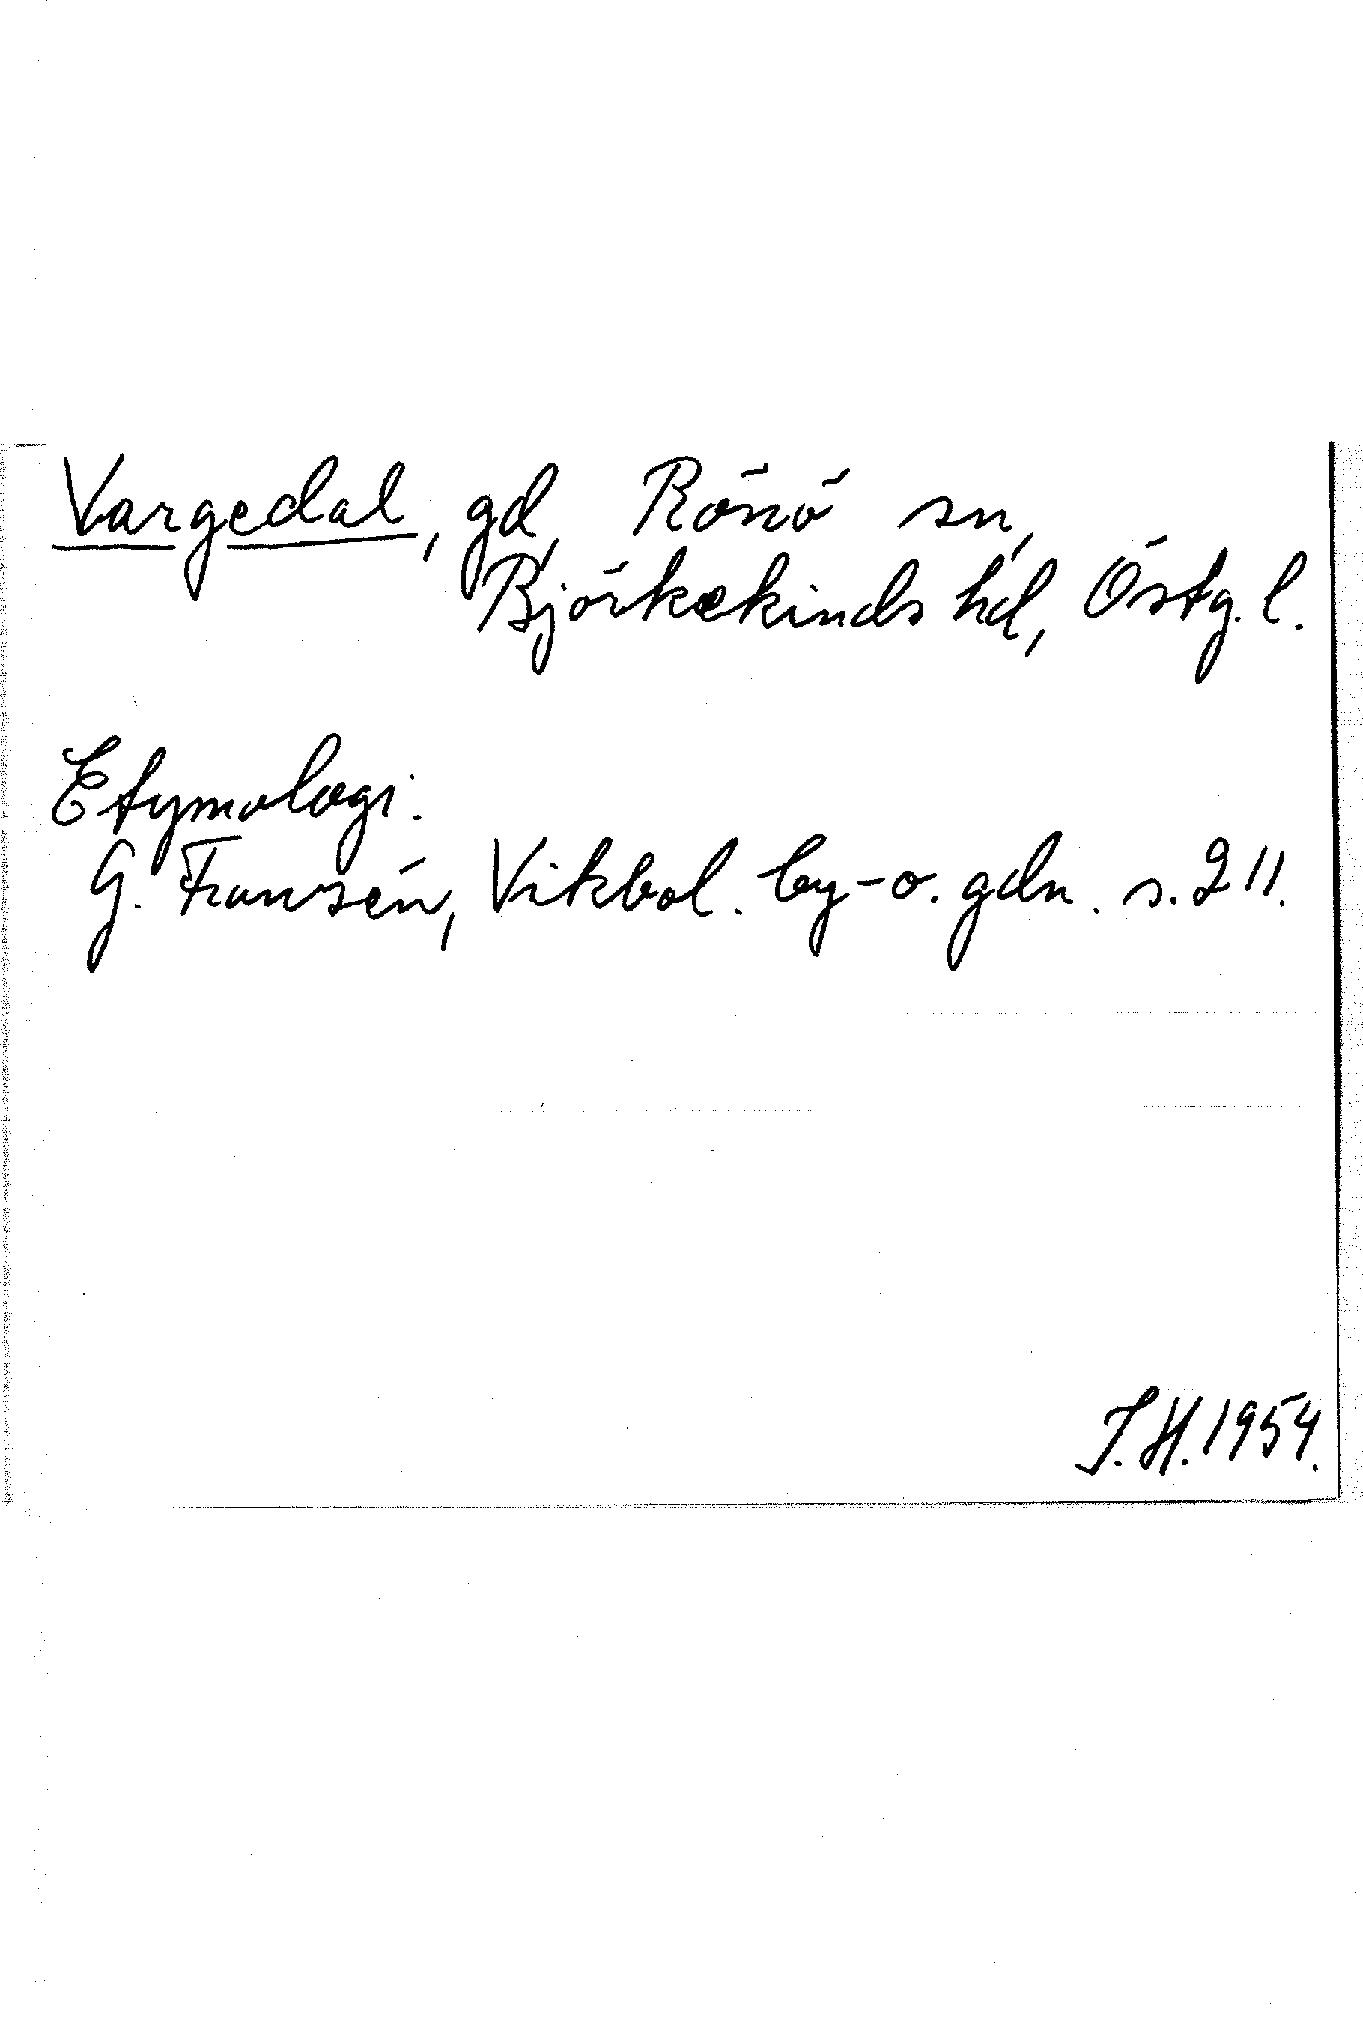 Vargedal, gd, Rönö sn,
Björkekinds hd, Östg. l.
Etymologi.
G. Franzén, Vikbol. by- o. gdn. s. 211.
I.H. 1954.